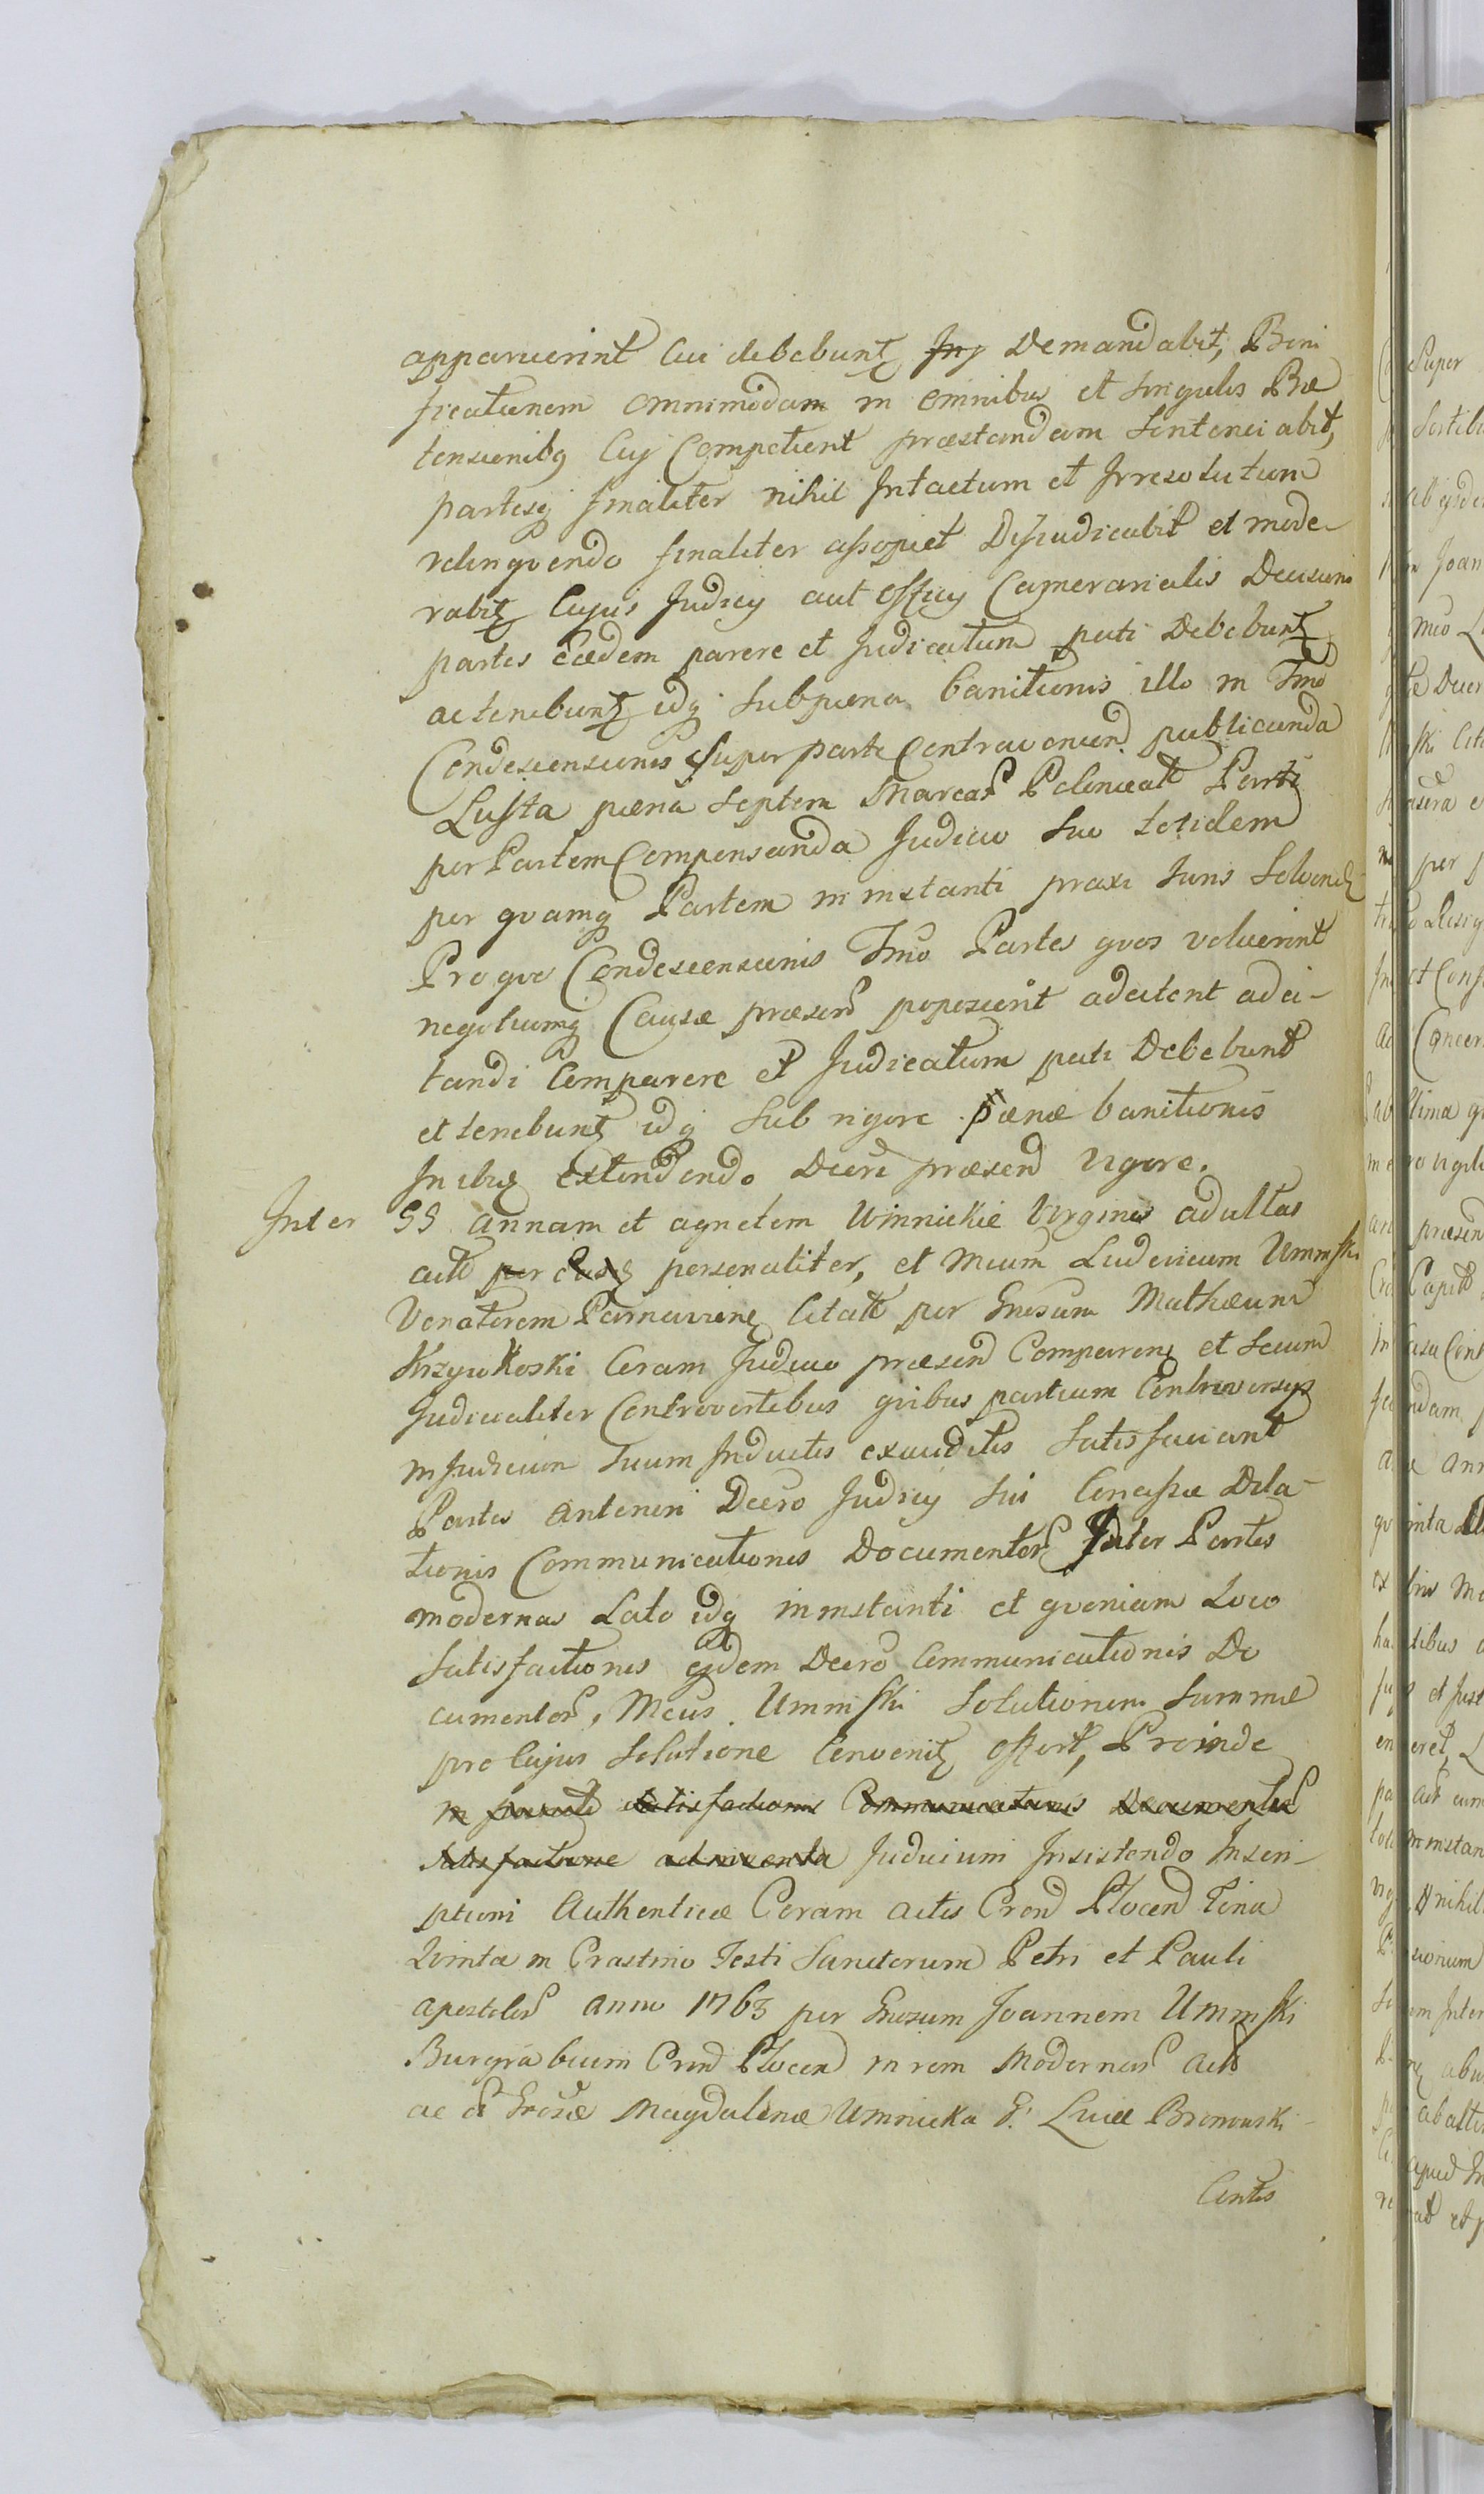 apparuerint Cui debebunt Demandabit, Boni
ficationem omnimodam in omnibus et singulis Præ
tensionibq Cuj Competient præstandam Sentenciabit,
partesq finaliter nihil Intactum et Irresolutum
relinquendo finaliter assopiet Dijudicabit et mode-
rabit Cujus Judicij aut officij Camerarialis Decisioni
partes eædem parere et Judicatum pati Debebunt
ac tenebunt idq Sub pæna banitionis illo in Tmo
Condescensionis super parte Contravenien publicanda
Lusta pæna Septem Marcar Polonicat Parti
per Partem Compensanda Judicio Suo totidem
per quamq Partem in instanti praxi Juris Solvend
Pro quo Condescensionis Tmo Partes quos voluerint
negotiumq Causæ præsen poposcerit adcitent adci-
tandi Comparere et Judicatum pati Debebunt
et tenebunt idq Sub rigore pænæ banitionis
In illis extendendo Decri præsend vigore.
Inter GG Annam et Agnetem Winnickie Virgines adultas
act per personaliter, et Mcum Ludovicum Uminski
Venatorem Parnavien Citatt per Gnosum Mathæum
Krzywkoski Coram Judicio præsend Comparen et Secum
Judicialiter Controvertibus quibus partium Controversijs
in Judicium Suum Inductis exauditis Satisfaciant
Partes Anteriori Decro Judicij Sui Concessæ Dila-
tionis Communicationis Documentor Inter Partes
modernas Lato idq in instanti et quoniam Loco
Satisfactionis ejdem Decro Communicationis Do
cumentor, Mcus. Uminski Solutionem Summæ
pro Cujus Solutione Convenit offert, Proinde
in satisfactionis Communicationis Documentor
Satisfactione adinventa Judicium Insistendo Inscri-
ptioni Authenticæ Coram Actis Cren Plocen Feria
Quinta in Crastino Festi Sanctorum Petri et Pauli
Apostolor Anno 1763 per Gnosum Joannem Uminski
Burgrabium Cren Plocen in rem Modernar Act
ac Gnosæ Magdalenæ Umnicka G. Lucæ Bromowski
Contis